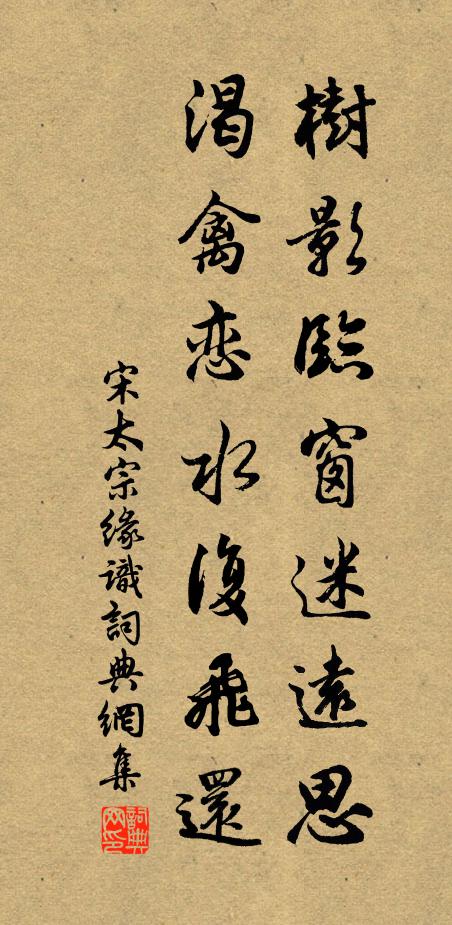 樹影臨窗迷遠思
渴禽恋水復飛還
宋太宗緣識詞典網集
詞典网印